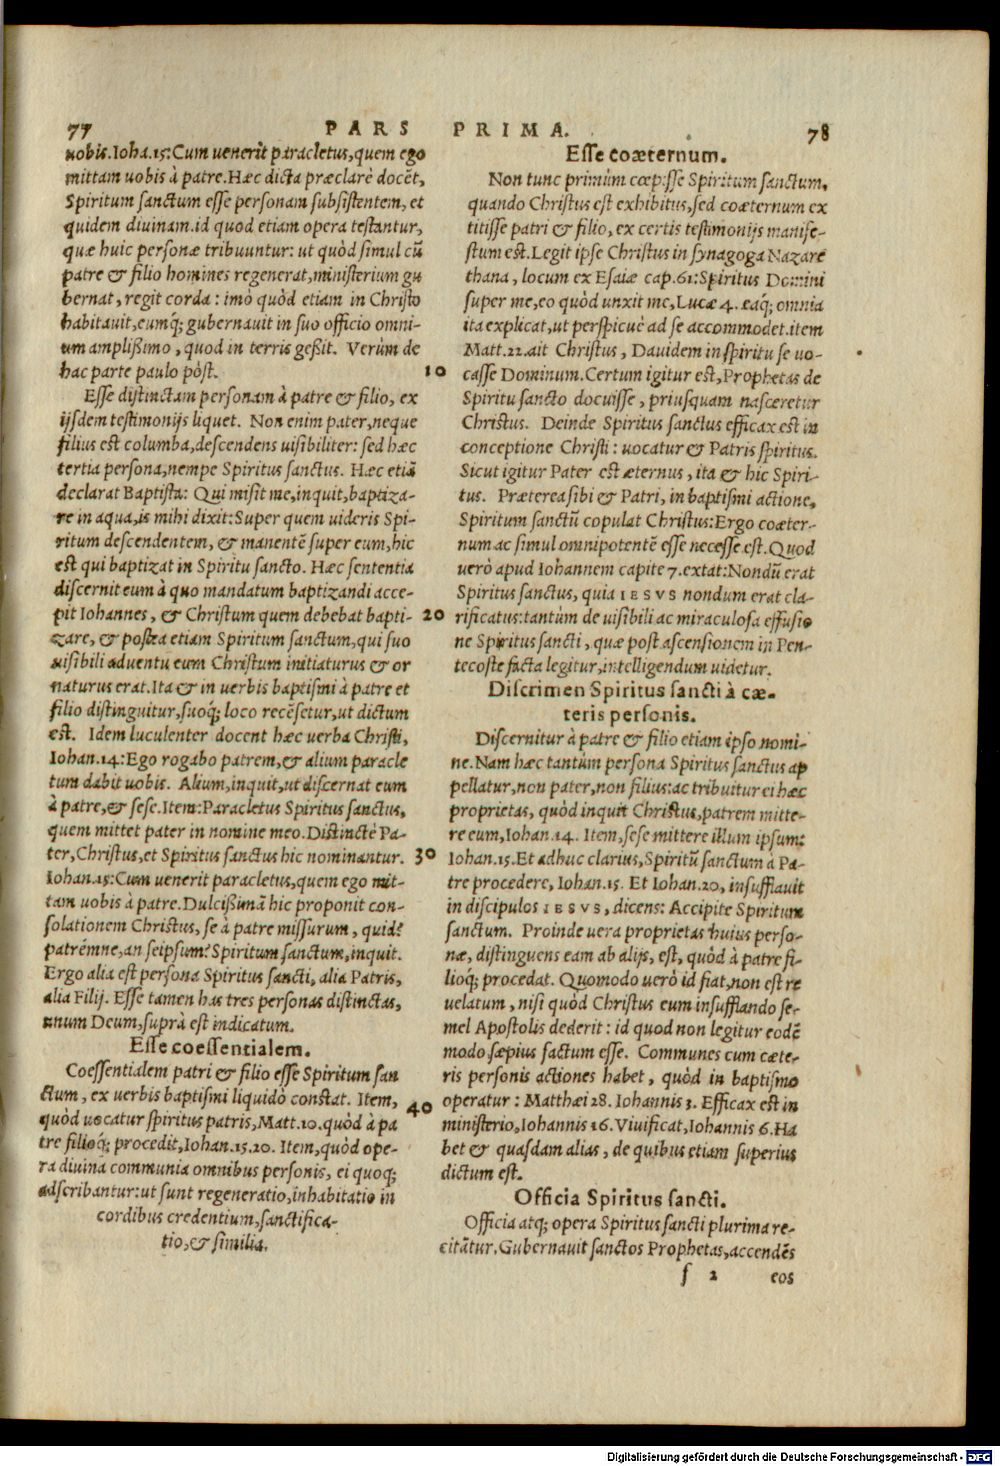 77 PARS PRIMA. 78
uobis. Ioha.15: Cum uenerit paracletus, quem ego
mittam uobis à patre. Hæc dicta præclarè docẽt,
Spiritum sanctum esse personam subsistentem, et
quidem diuinam. id quod etiam opera testantur,
quæ huic personæ tribuuntur: ut quòd simul cũ
patre & filio homines regenerat, ministerium gu
bernat, regit corda: imò quòd etiam in Christo
habitauit, eumq́; gubernauit in suo officio omni-
um amplißimo, quod in terris geßit. Verùm de
hac parte paulo pòst. 10
Esse distinctam personam à patre & filio, ex
ijsdem testimonijs liquet. Non enim pater, neque
filius est columba, descendens uisibiliter: sed hæc
tertia persona, nempe Spiritus sanctus. Hæc etiã
declarat Baptista: Qui misit me, inquit, baptiza-
re in aqua, is mihi dixit: Super quem uideris Spi-
ritum descendentem, & manentẽ super eum, hic
est qui baptizat in Spiritu sancto. Hæc sententia
discernit eum à quo mandatum baptizandi acce-
pit Iohannes, & Christum quem debebat bapti- 20
zare, & postea etiam Spiritum sanctum, qui suo
uisibili aduentu eum Christum initiaturus & or
naturus erat. Ita & in uerbis baptismi à patre et
filio distinguitur, suoq́; loco recẽsetur, ut dictum
est. Idem luculenter docent hæc uerba Christi,
Iohan.14: Ego rogabo patrem, & alium paracle
tum dabit uobis. Alium, inquit, ut discernat eum
à patre, & sese. Item: Paracletus Spiritus sanctus,
quem mittet pater in nomine meo. Distinctè Pa-
ter, Christus, et Spiritus sanctus hic nominantur. 30
Iohan.15: Cum uenerit paracletus, quem ego mit-
tam uobis à patre. Dulcißimã hic proponit con-
solationem Christus, se à patre missurum, quid?
patremne, an seipsum? Spiritum sanctum, inquit.
Ergo alia est persona Spiritus sancti, alia Patris,
alia Filij. Esse tamen has tres personas distinctas,
unum Deum, suprà est indicatum.
Esse coessentialem.
Coessentialem patri & filio esse Spiritum san
ctum, ex uerbis baptismi liquidò constat. Item, 40
quòd uocatur spiritus patris, Matt.10. quòd à pa
tre filioq́; procedit, Iohan.15.20. Item, quòd ope-
ra diuina communia omnibus personis, ei quoq;
adscribantur: ut sunt regeneratio, inhabitatio in
cordibus credentium, sanctifica-
tio, & similia.
Esse coæternum.
Non tunc primùm cœpisse Spiritum sanctum,
quando Christus est exhibitus, sed coæternum ex
titisse patri & filio, ex certis testimonijs manife-
stum est. Legit ipse Christus in synagoga Nazare
thana, locum ex Esaiæ cap.61: Spiritus Domini
super me, eo quòd unxit me, Lucæ 4. eaq́; omnia
ita explicat, ut perspicuè ad se accommodet. item
Matt.22. ait Christus, Dauidem in spiritu se uo-
casse Dominum. Certum igitur est, Prophetas de
Spiritu sancto docuisse, priusquam nasceretur
Christus. Deinde Spiritus sanctus efficax est in
conceptione Christi: uocatur & Patris spiritus.
Sicut igitur Pater est æternus, ita & hic Spiri-
tus. Præterea sibi & Patri, in baptismi actione,
Spiritum sanctũ copulat Christus: Ergo coæter-
num ac simul omnipotentẽ esse necesse est. Quod
uerò apud Iohannem capite 7. extat: Nondũ erat
Spiritus sanctus, quia IESVS nondum erat cla-
rificatus: tantùm de uisibili ac miraculosa effusio
ne Spiritus sancti, quæ post ascensionem in Pen-
tecoste facta legitur, intelligendum uidetur.
Discrimen Spiritus sancti à cæ-
teris personis.
Discernitur à patre & filio etiam ipso nomi-
ne. Nam hæc tantùm persona Spiritus sanctus ap
pellatur, non pater, non filius: ac tribuitur ei hæc
proprietas, quòd inquit Christus, patrem mitte-
re eum, Iohan.14. Item, sese mittere illum ipsum:
Iohan.15. Et adhuc clarius, Spiritũ sanctum à Pa-
tre procedere, Iohan.15. Et Iohan.20, insufflauit
in discipulos IESVS, dicens: Accipite Spiritum
sanctum. Proinde uera proprietas huius perso-
næ, distinguens eam ab alijs, est, quòd à patre fi-
lioq́; procedat. Quomodo uerò id fiat, non est re
uelatum, nisi quòd Christus eum insufflando se-
mel Apostolis dederit: id quod non legitur eodẽ
modo sæpius factum esse. Communes cum cæte-
ris personis actiones habet, quòd in baptismo
operatur: Matthæi 28. Iohannis 3. Efficax est in
ministerio, Iohannis 16. Viuificat, Iohannis 6. Ha
bet & quasdam alias, de quibus etiam superius
dictum est.
Officia Spiritus sancti.
Officia atq; opera Spiritus sancti plurima re-
citãtur. Gubernauit sanctos Prophetas, accendẽs
f 2 eos
Digitalisierung gefördert durch die Deutsche Forschungsgemeinschaft - DFG